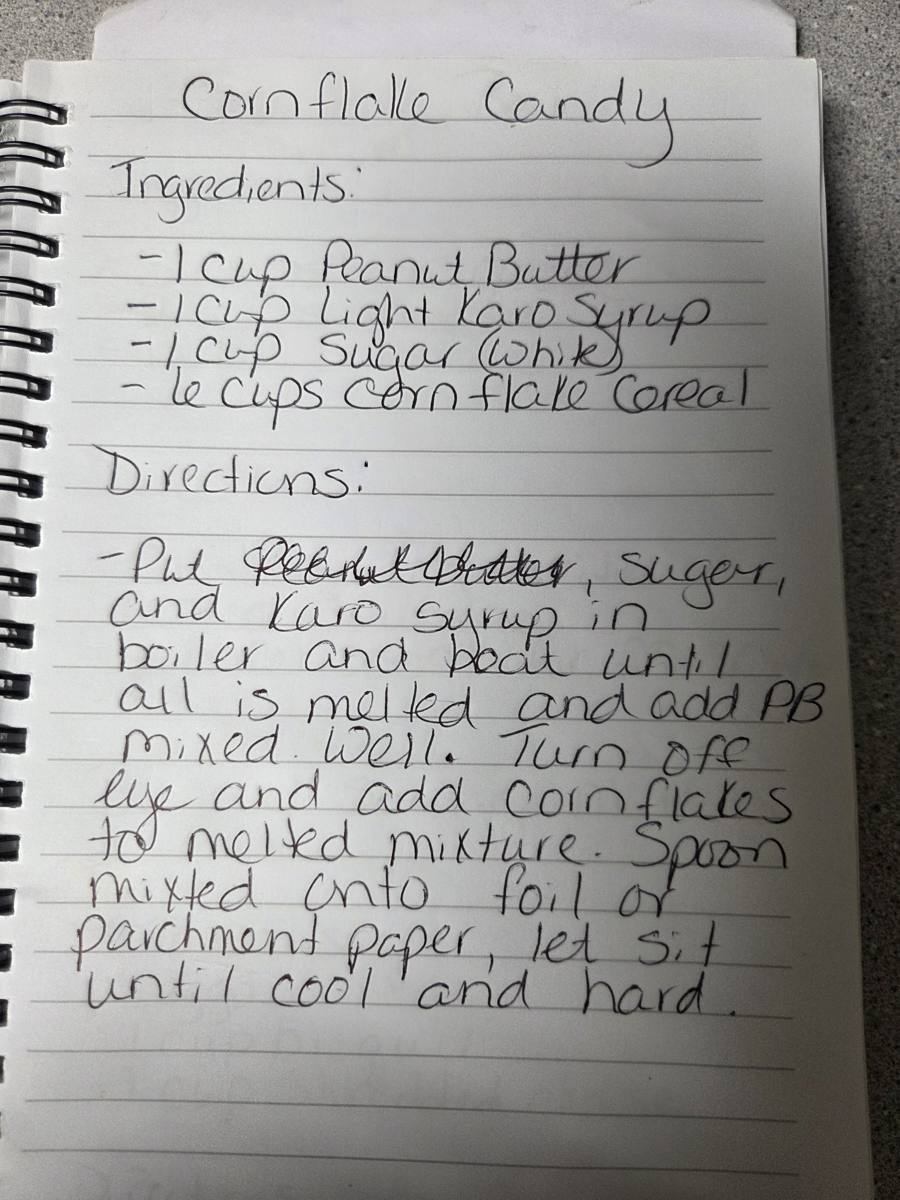 Cornflake Candy
Ingredients:
- 1 cup Peanut Butter
- 1 cup Light Karo Syrup
- 1 cup Sugar (White)
- 6 cups corn flake Cereal
Directions:
- Put Peanut butter, sugar,
and Karo syrup in
boiler and heat until
all is melted and add PB
mixed well. Turn off
eye and add cornflakes
to melted mixture. Spoon
mixted onto foil or
parchment paper, let sit
until cool and hard.